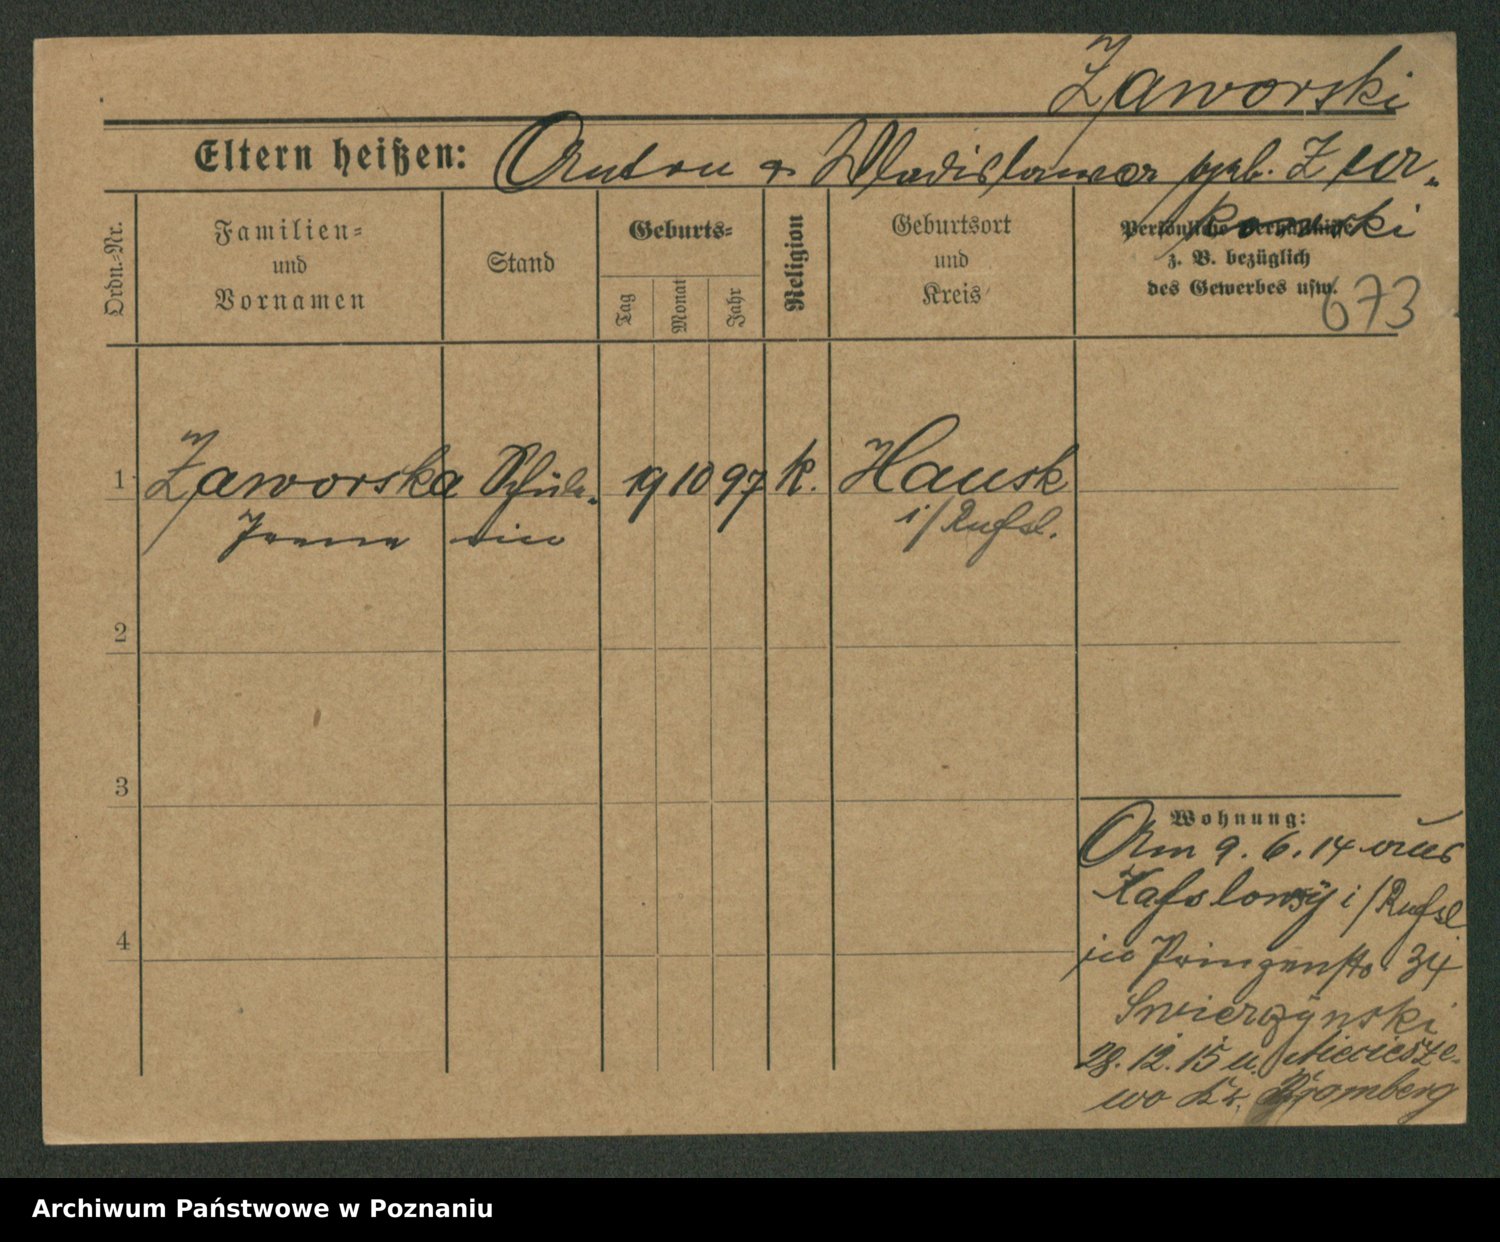 Zaworski
Eltern heißen: Anton & Wladislawa geb. Zur-
kowski
Ordn.-Nr.
Familien-
und
Vornamen
Stand
Geburts-
Tag
Monat
Jahr
Religion
Geburtsort
und
Kreis
Persönliche Verhältnisse
z. B. bezüglich
des Gewerbes usw.
673
1 Zaworska Schüle- 19 10 97 k. Hausk
Irena rin i/Rußl.
2
3
4
Wohnung:
Am 9. 6. 14 aus
i/Rußl
in Prinzenstr 34
Swierczynski
28. 12. 15 n.
wo Kr. Bromberg
Archiwum Państwowe w Poznaniu